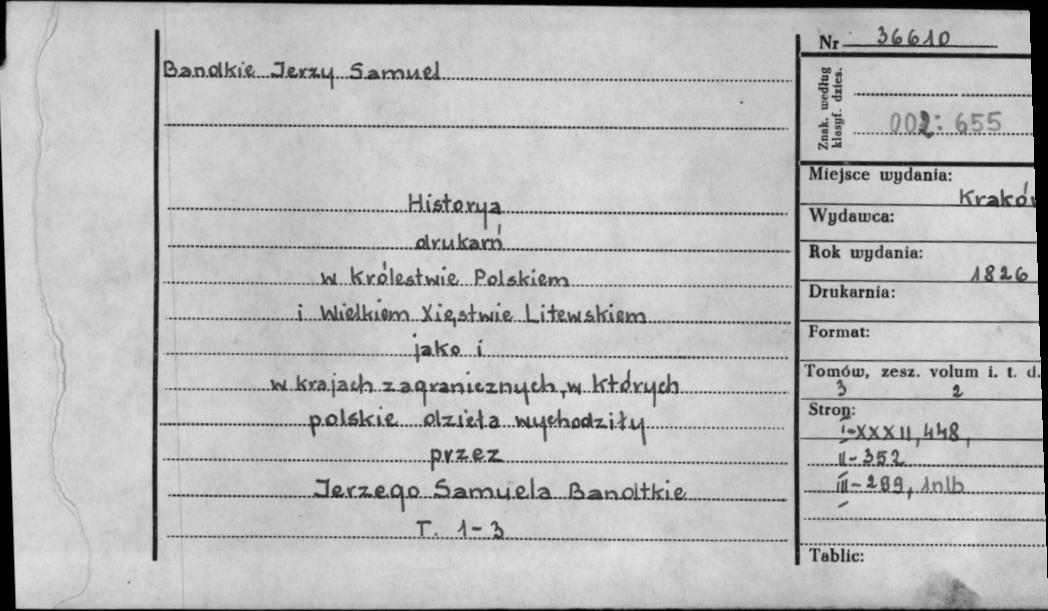 Bandkie Jerzy Samuel
Historya
drukarń
w Królestwie Polskiem
i Wielkiem Xięstwie Litewskiem
jako i
w krajach zagranicznych, w których
polskie dzieła wychodziły
przez
Jerzego Samuela Bandtkie
T. 1-3
Nr 36610
Znak. według
klasyf. dzies.
002: 655
Miejsce wydania:
Kraków
Wydawca:
Rok wydania:
1826
Drukarnia:
Format:
Tomów, zesz. volum i. t. d.
3 2
Stron:
I-XXXII, 448,
II-352
III-289, 1nlb
Tablic: